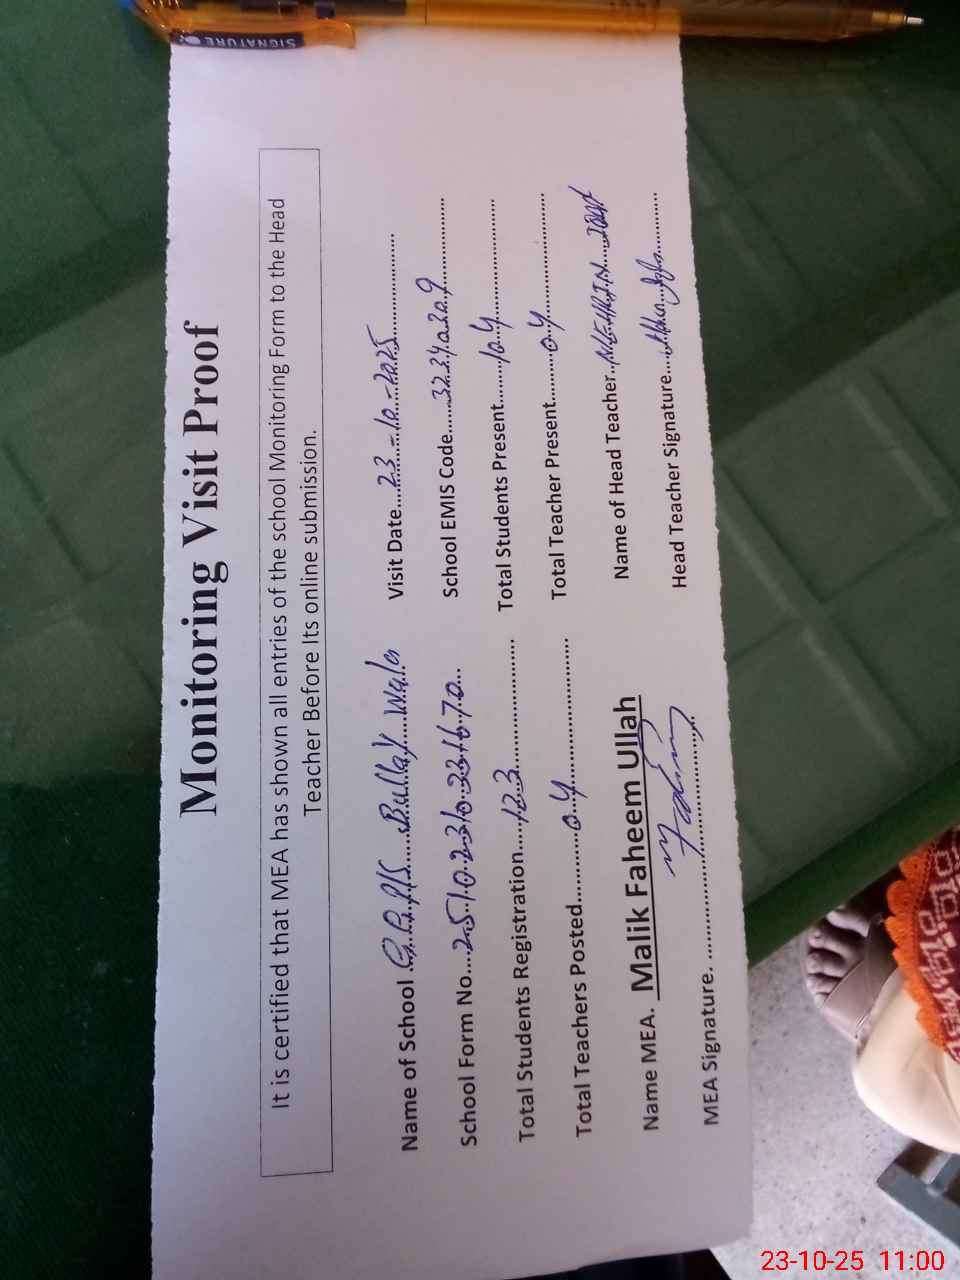 SIGNATURE
Monitoring Visit Proof
It is certified that MEA has shown all entries of the school Monitoring Form to the Head
Teacher Before Its online submission.
Name of School G.G.P/S Bullay Wala Visit Date 23-10-2025
School Form No. 2510231033670 School EMIS Code 32340209
Total Students Registration 123 Total Students Present 104
Total Teachers Posted 04 Total Teacher Present 04
Name MEA. Malik Faheem Ullah Name of Head Teacher
MEA Signature. Head Teacher Signature
23-10-25 11:00